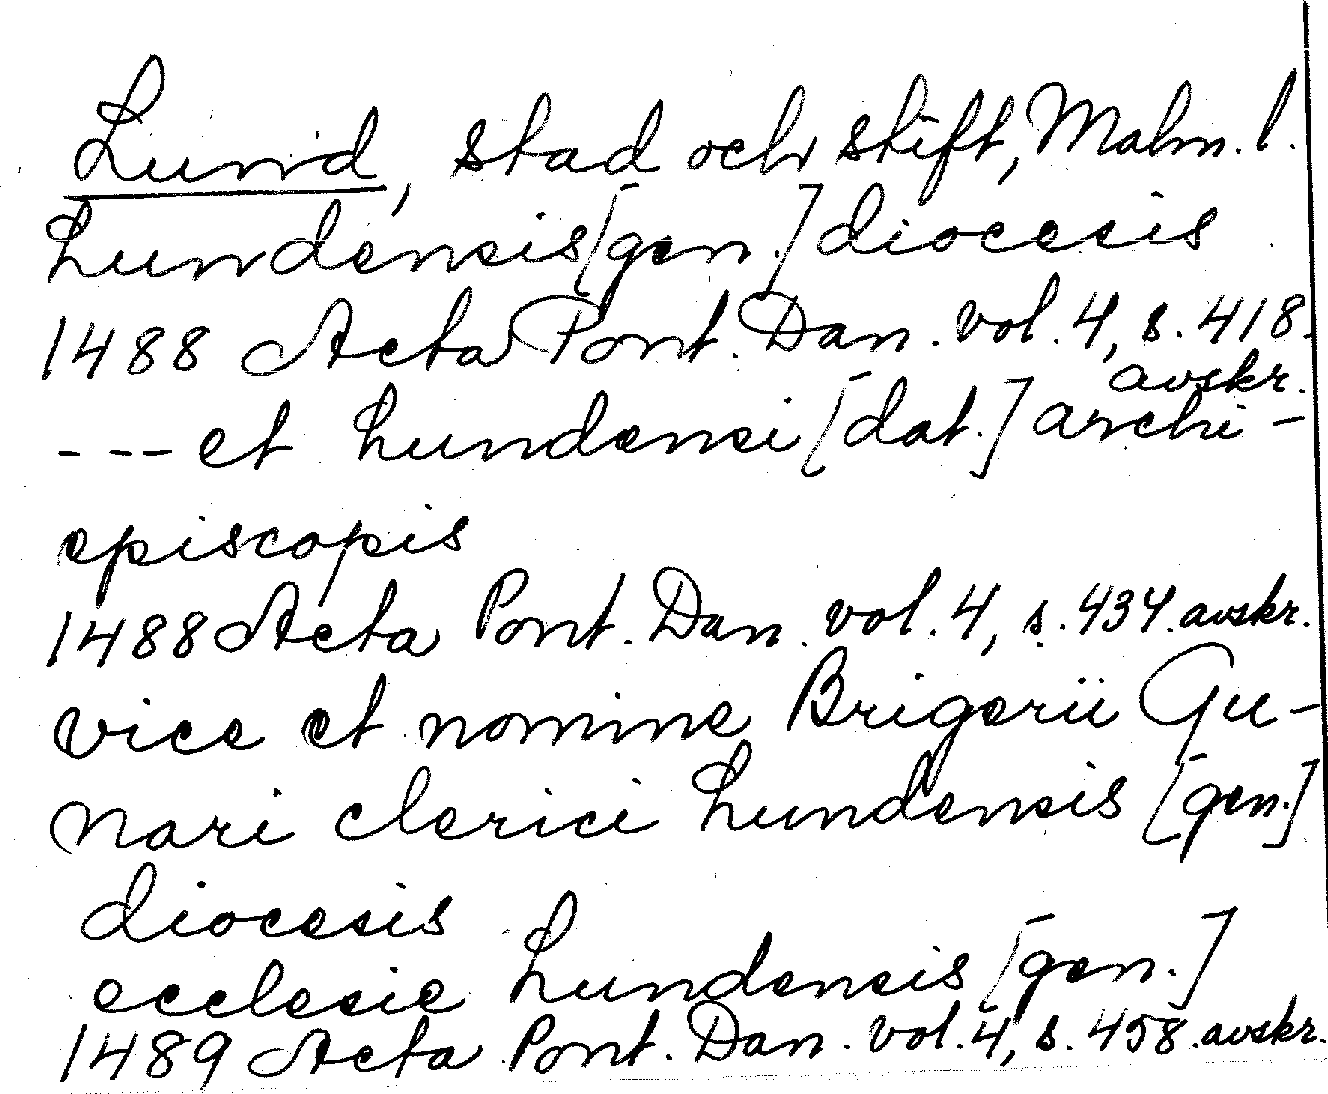 Lund, stad och stift, Malm. l.
Lundensis [gen.] diocesis
1488 Acta Pont. Dan. vol. 4, s. 418.
avskr.
--- et Lundensi [dat.] archi-
episcopis
1488 Acta Pont. Dan. vol. 4, s. 434. avskr.
vice et nomine Brigerii Gu-
nari clerici Lundensis [gen.]
diocesis
ecclesie Lundensis [gen.]
1489 Acta Pont. Dan. vol. 4, s. 458. avskr.